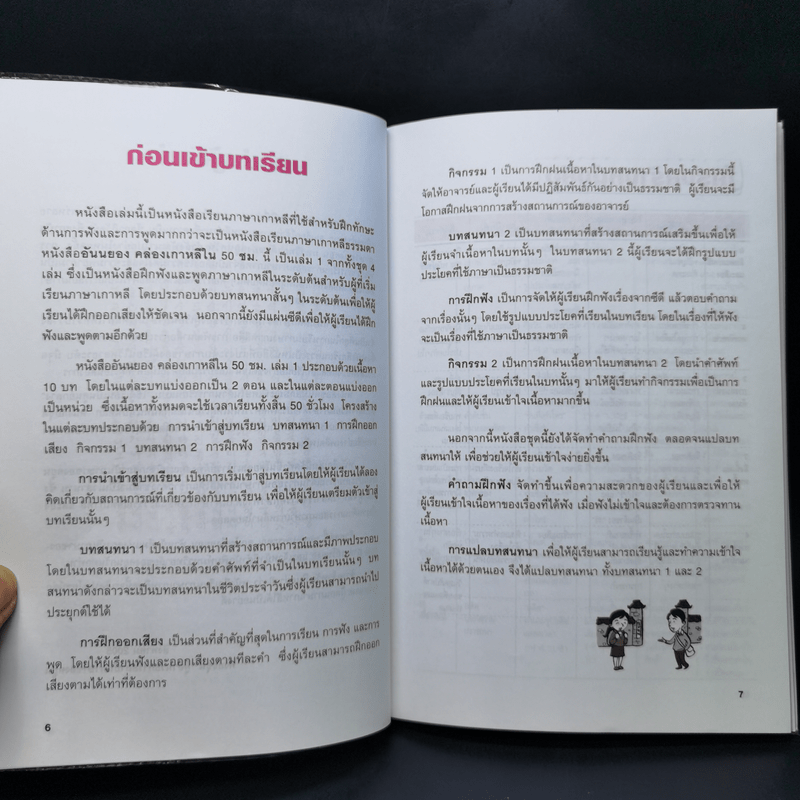 ก่อนเข้าบทเรียน
หนังสือเล่มนี้เป็นหนังสือเรียนภาษาเกาหลีที่ใช้สำหรับฝึกทักษะ
ด้านการฟังและการพูดมากกว่าจะเป็นหนังสือเรียนภาษาเกาหลีธรรมดา
หนังสืออันนยอง คล่องเกาหลีใน 50 ชม. นี้ เป็นเล่ม 1 จากทั้งชุด 4
เล่ม ซึ่งเป็นหนังสือฝึกฟังและพูดภาษาเกาหลีในระดับต้นสำหรับผู้ที่เริ่ม
เรียนภาษาเกาหลี โดยประกอบด้วยบทสนทนาสั้นๆ ในระดับต้นเพื่อให้ผู้
เรียนได้ฝึกออกเสียงให้ชัดเจน นอกจากนี้ยังมีแผ่นซีดีเพื่อให้ผู้เรียนได้ฝึก
ฟังและพูดตามอีกด้วย
หนังสืออันนยอง คล่องเกาหลีใน 50 ชม. เล่ม 1 ประกอบด้วยเนื้อหา
10 บท โดยในแต่ละบทแบ่งออกเป็น 2 ตอน และในแต่ละตอนแบ่งออก
เป็นหน่วย ซึ่งเนื้อหาทั้งหมดจะใช้เวลาเรียนทั้งสิ้น 50 ชั่วโมง โครงสร้าง
ในแต่ละบทประกอบด้วย การนำเข้าสู่บทเรียน บทสนทนา 1 การฝึกออก
เสียง กิจกรรม 1 บทสนทนา 2 การฝึกฟัง กิจกรรม 2
การนำเข้าสู่บทเรียน เป็นการเริ่มเข้าสู่บทเรียนโดยให้ผู้เรียนได้ลอง
คิดเกี่ยวกับสถานการณ์ที่เกี่ยวข้องกับบทเรียน เพื่อให้ผู้เรียนเตรียมตัวเข้าสู่
บทเรียนนั้นๆ
บทสนทนา 1 เป็นบทสนทนาที่สร้างสถานการณ์และมีภาพประกอบ
โดยในบทสนทนาจะประกอบด้วยคำศัพท์ที่จำเป็นในบทเรียนนั้นๆ บท
สนทนาดังกล่าวจะเป็นบทสนทนาในชีวิตประจำวันซึ่งผู้เรียนสามารถนำไป
ประยุกต์ใช้ได้
การฝึกออกเสียง เป็นส่วนที่สำคัญที่สุดในการเรียน การฟัง และการ
พูด โดยให้ผู้เรียนฟังและออกเสียงตามทีละคำ ซึ่งผู้เรียนสามารถฝึกออก
เสียงตามได้เท่าที่ต้องการ
6
กิจกรรม 1 เป็นการฝึกฝนเนื้อหาในบทสนทนา 1 โดยในกิจกรรมนี้
จัดให้อาจารย์และผู้เรียนได้มีปฏิสัมพันธ์กันอย่างเป็นธรรมชาติ ผู้เรียนจะมี
โอกาสฝึกฝนจากการสร้างสถานการณ์ของอาจารย์
บทสนทนา 2 เป็นบทสนทนาที่สร้างสถานการณ์เสริมขึ้นเพื่อให้
ผู้เรียนจำเนื้อหาในบทนั้นๆ ในบทสนทนา 2 นี้ผู้เรียนจะได้ฝึกรูปแบบ
ประโยคที่ใช้ภาษาเป็นธรรมชาติ
การฝึกฟัง เป็นการจัดให้ผู้เรียนฝึกฟังเรื่องจากซีดี แล้วตอบคำถาม
จากเรื่องนั้นๆ โดยใช้รูปแบบประโยคที่เรียนในบทเรียน โดยในเรื่องที่ให้ฟัง
จะเป็นเรื่องที่ใช้ภาษาเป็นธรรมชาติ
กิจกรรม 2 เป็นการฝึกฝนเนื้อหาในบทสนทนา 2 โดยนำคำศัพท์
และรูปแบบประโยคที่เรียนในบทนั้นๆ มาให้ผู้เรียนทำกิจกรรมเพื่อเป็นการ
ฝึกฝนและให้ผู้เรียนเข้าใจเนื้อหามากขึ้น
นอกจากนี้หนังสือชุดนี้ยังได้จัดทำคำถามฝึกฟัง ตลอดจนแปลบท
สนทนาให้ เพื่อช่วยให้ผู้เรียนเข้าใจง่ายยิ่งขึ้น
คำถามฝึกฟัง จัดทำขึ้นเพื่อความสะดวกของผู้เรียนและเพื่อให้
ผู้เรียนเข้าใจเนื้อหาของเรื่องที่ได้ฟัง เมื่อฟังไม่เข้าใจและต้องการตรวจทาน
เนื้อหา
การแปลบทสนทนา เพื่อให้ผู้เรียนสามารถเรียนรู้และทำความเข้าใจ
เนื้อหาได้ด้วยตนเอง จึงได้แปลบทสนทนา ทั้งบทสนทนา 1 และ 2
7